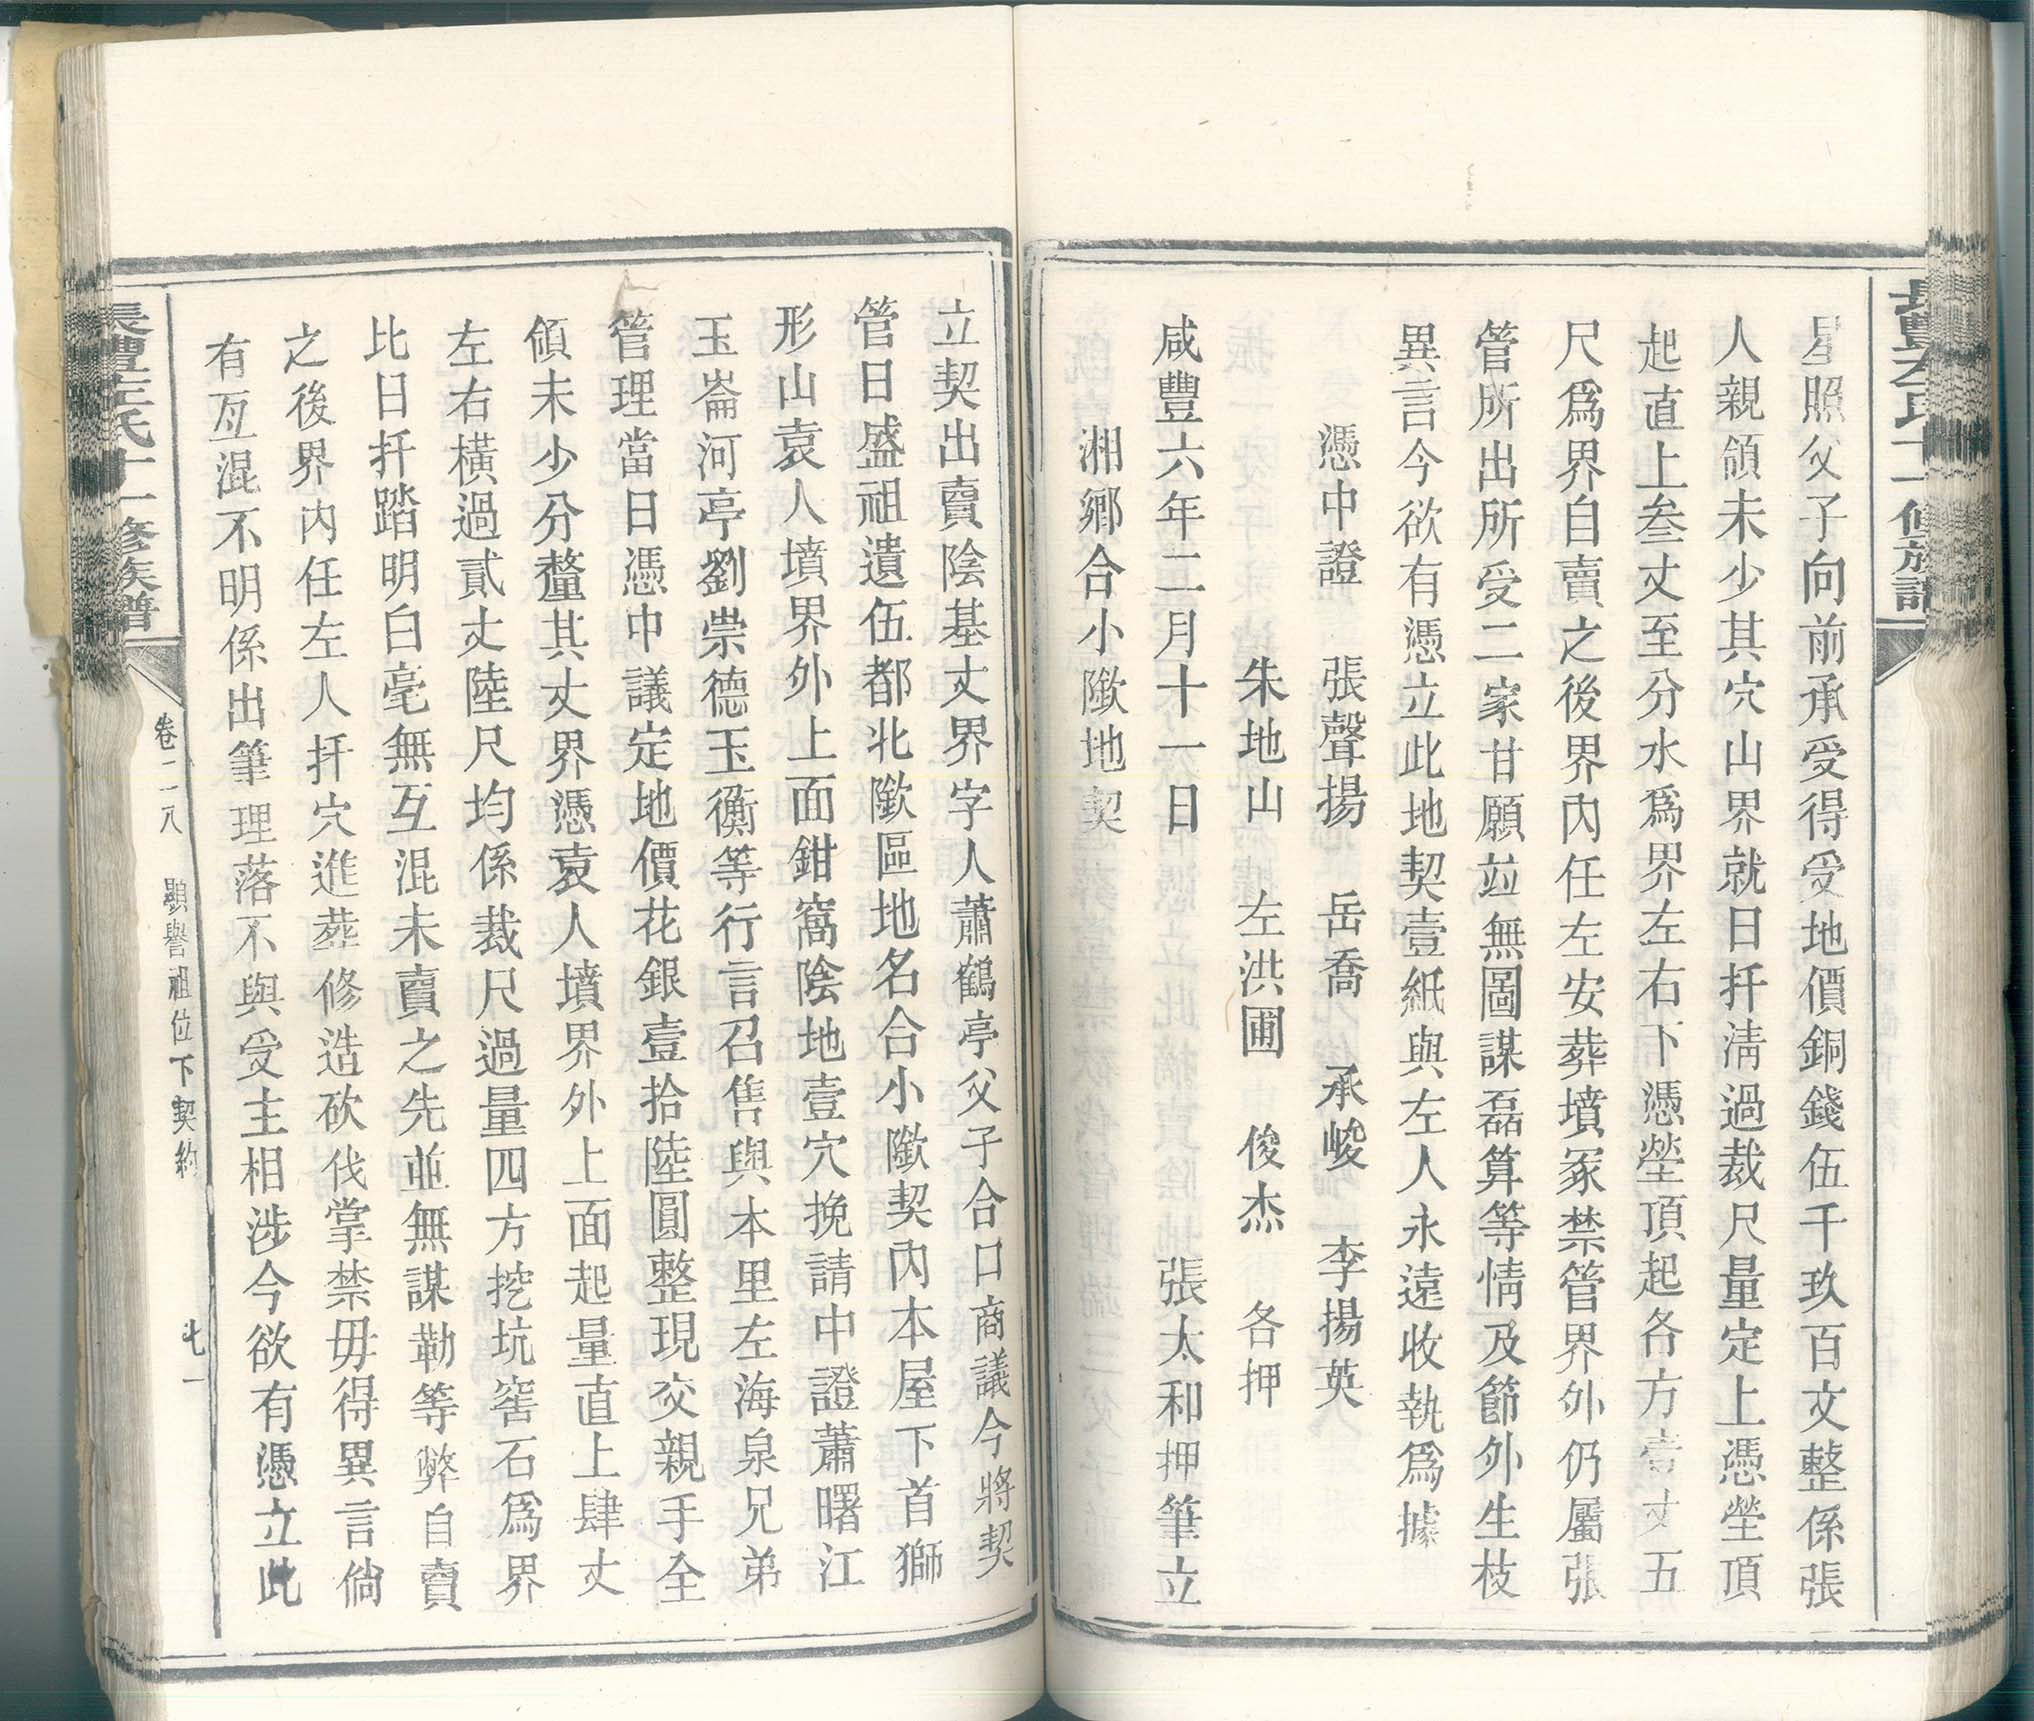 長豐左氏十一修族譜
星照父子向前承受得受地價銅錢伍千玖百文整係張
人親領未少其穴山界就日扦淸過裁尺量定上憑塋頂
起直上叁丈至分水爲界左右下憑塋頂起各方壹丈五
尺爲界自賣之後界內任左安葬墳冢禁管界外仍屬張
管所出所受二家甘願竝無圖謀磊算等情及節外生枝
異言今欲有憑立此地契壹紙與左人永遠收執爲據
憑中證 張聲揚 岳喬 承峻 李揚英
朱地山 左洪圃 俊杰 各押
咸豐六年二月十一日 張太和押筆立
湘鄉合小隞地契
立契出賣陰基丈界字人蕭鶴亭父子合口商議今將契
管日盛祖遺伍都北隞區地名合小隞契內本屋下首獅
形山袁人墳界外上面鉗窩陰地壹穴挽請中證蕭曙江
玉崙河亭劉崇德玉衡等行言召售與本里左海泉兄弟
管理當日憑中議定地價花銀壹拾陸圓整現交親手全
領未少分釐其丈界憑袁人墳界外上面起量直上肆丈
左右橫過貳丈陸尺均係裁尺過量四方挖坑窖石爲界
比日扦踏明白毫無互混未賣之先並無謀勒等弊自賣
之後界內任左人扦穴進葬修造砍伐掌禁毋得異言倘
有互混不明係出筆理落不與受主相涉今欲有憑立此
長豐左氏十一修族譜
卷二一八 顯譽祖位下契約 七一